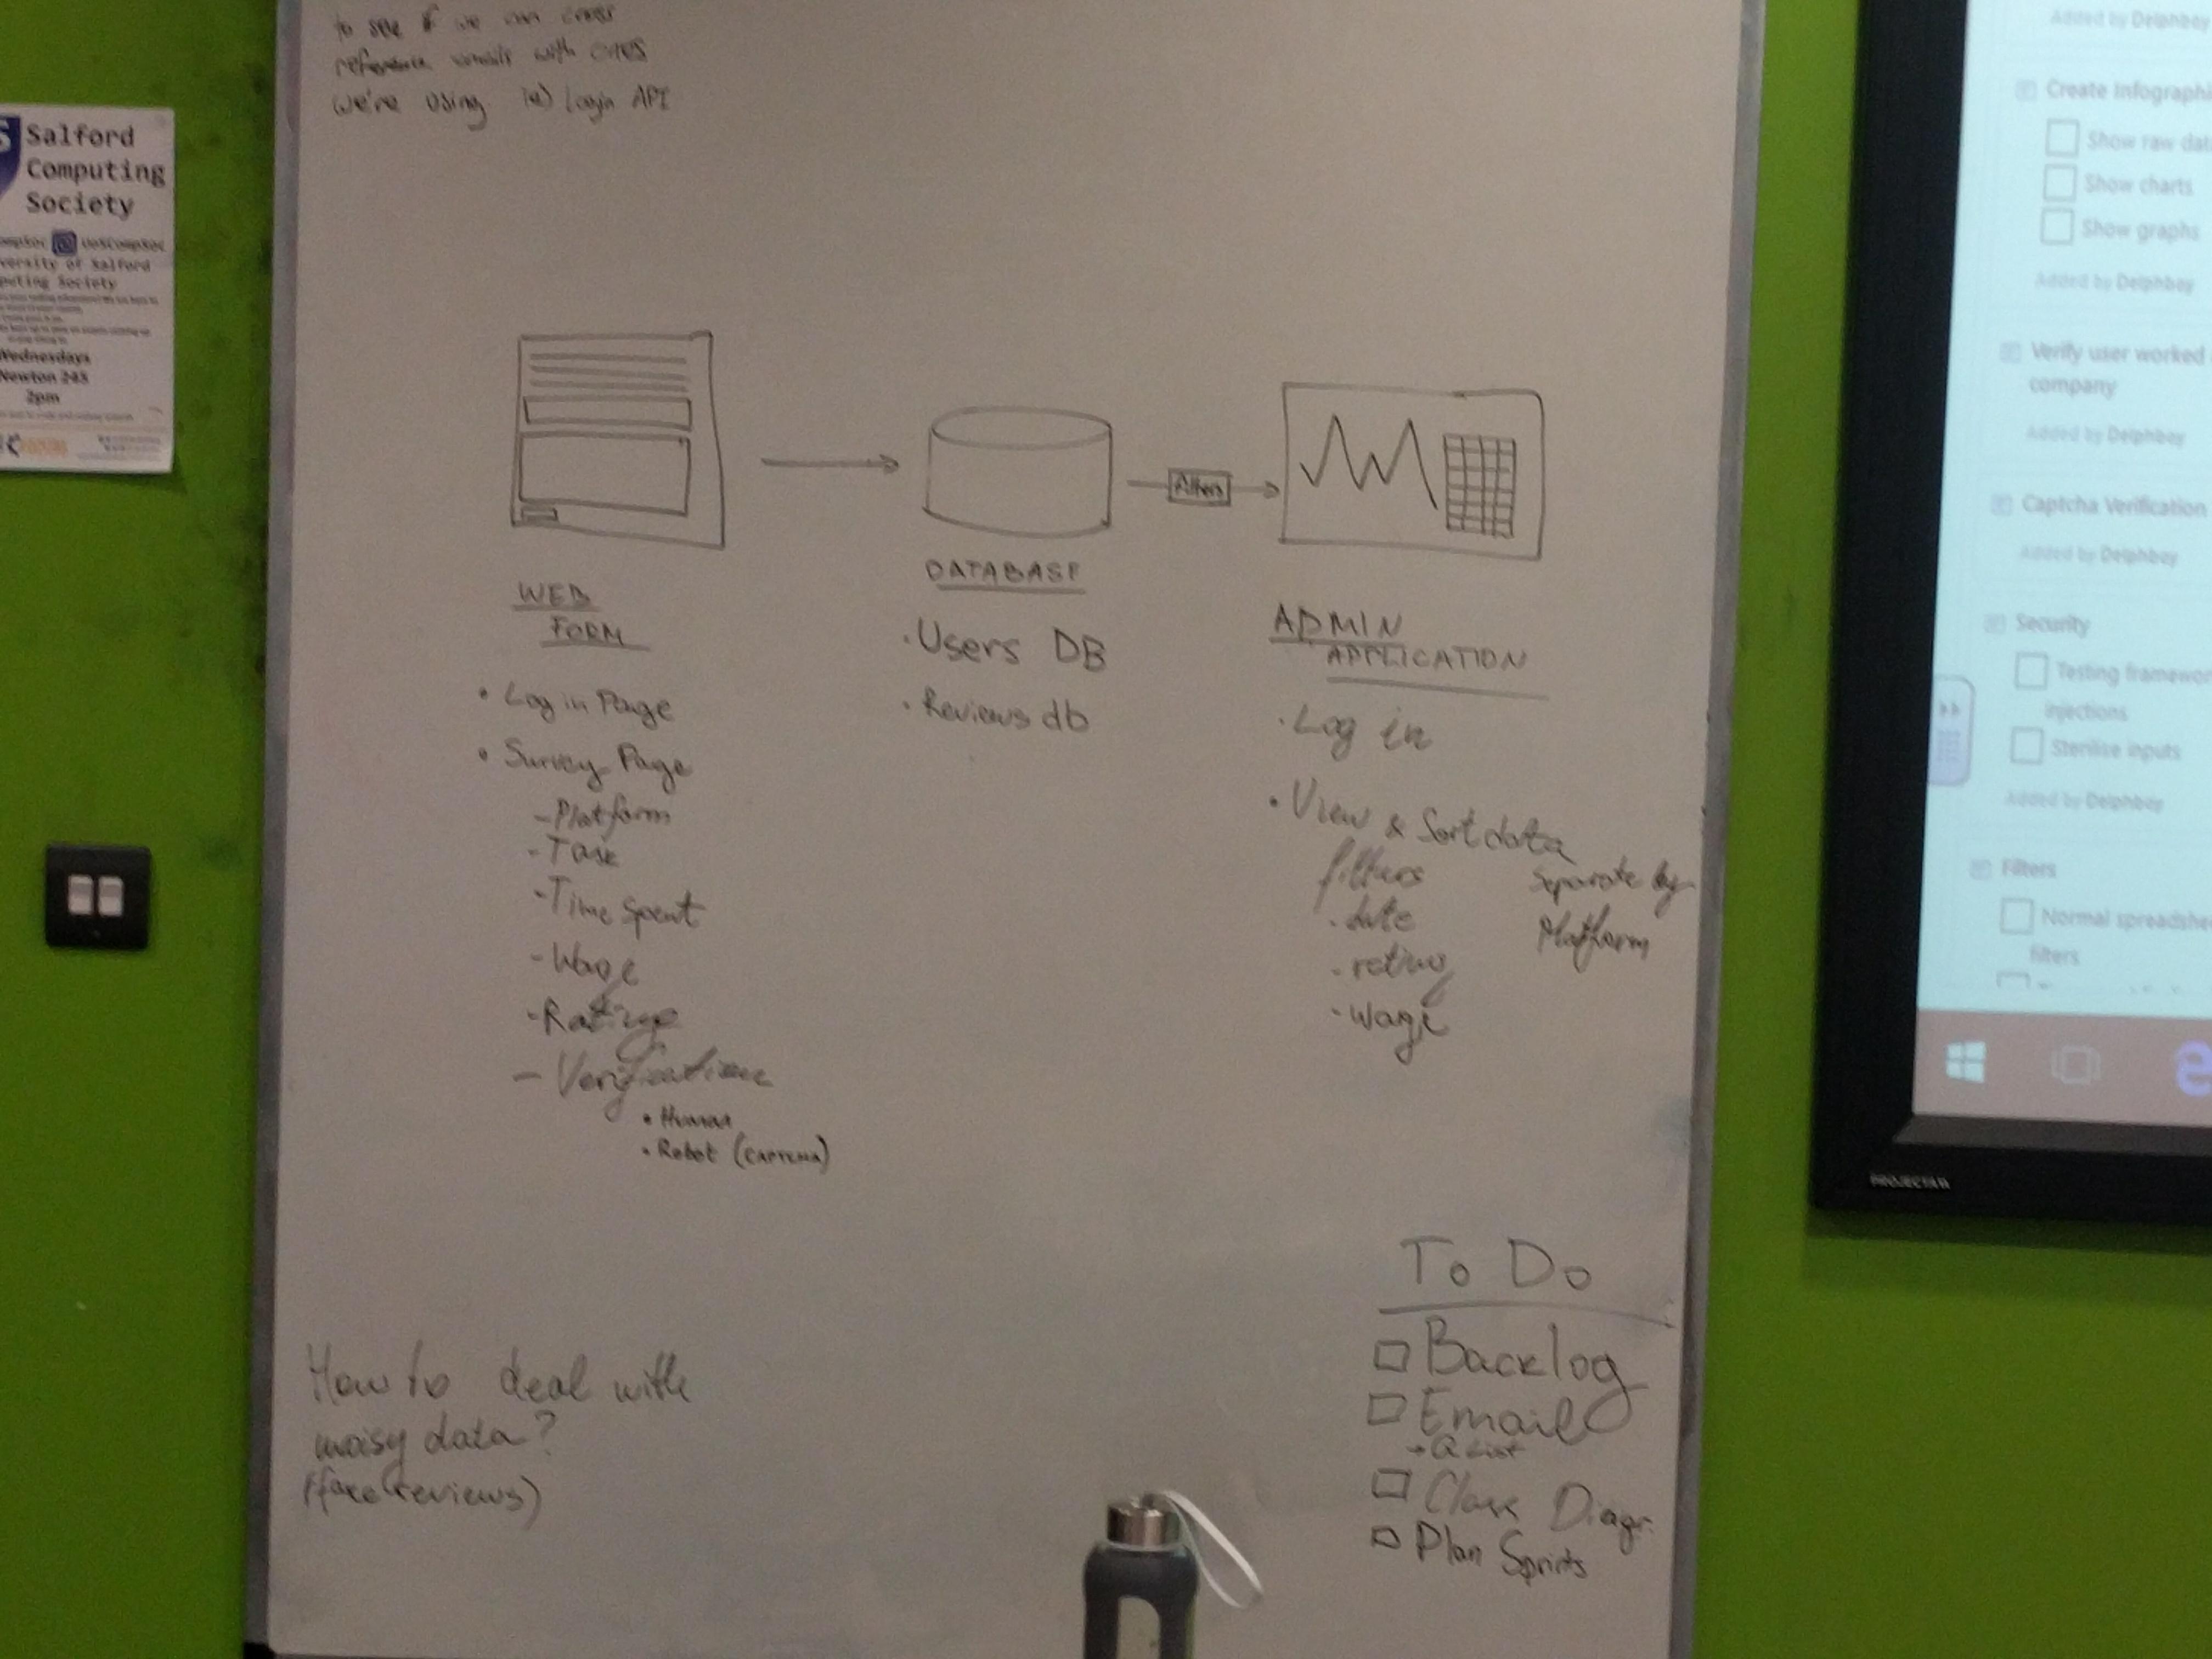 to see if we can cross
reference emails with ones
we're using ie) Login API
Salford
Computing
Society
UoSCompSoc
versity of Salford
puting Society
Wednesdays
Newton 243
2pm
WEB
FORM
• Log in Page
• Survey Page
- Platform
- Task
- Time Spent
- Wage
- Ratings
- Verification
• Human
• Robot (CAPTCHA)
DATABASE
• Users DB
• Reviews db
ADMIN
APPLICATION
• Log in
• View & Sort data
filters
• date
• rating
• wage
Separate by
Platform
How to deal with
noisy data?
(fake reviews)
To Do
Backlog
Email
→ Q List
Class Diagr.
Plan Sprints
Added by Delphboy
Create Infographi
Show raw dat
Show charts
Show graphs
Added by Delphboy
Verify user worked
company
Added by Delphboy
Captcha Verification
Added by Delphboy
Security
Testing framewor
injections
Sterilise inputs
Added by Delphboy
Filters
Normal spreadshe
filters